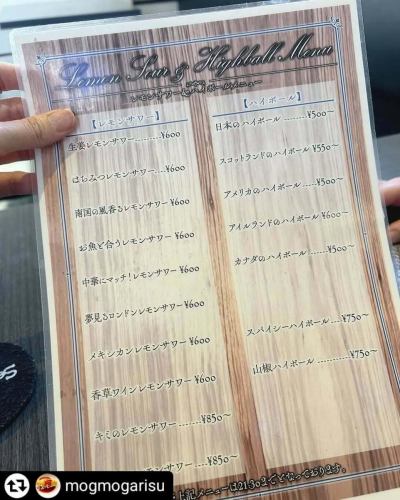 Lemon Sour & Highball Menu
レモンサワー&ハイボールメニュー
【レモンサワー】
生姜レモンサワー.........¥600
はちみつレモンサワー....¥600
南国の風香るレモンサワー ¥600
お魚と合うレモンサワー ¥600
中華にマッチ!レモンサワー ¥600
夢見るロンドンレモンサワー ¥600
メキシカンレモンサワー ¥600
香草ワインレモンサワー ¥600
キミのレモンサワー .....¥850~
レモンサワー ....¥850~
【ハイボール】
日本のハイボール ........¥500~
スコットランドのハイボール ¥550~
アメリカのハイボール .....¥500~
アイルランドのハイボール ¥600~
カナダのハイボール ......¥500~
スパイシーハイボール....¥750~
山椒ハイボール ..........¥750~
上記メニューは21:30までとなっております。
mogmogarisu